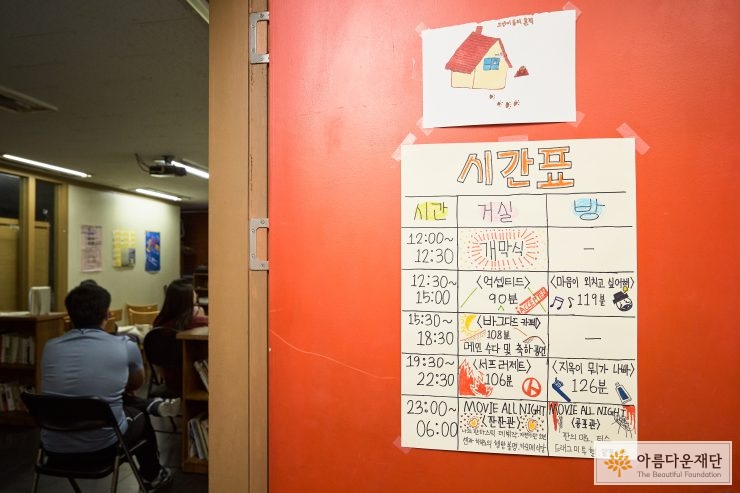 시간표
시간 거실 방
12:00~
12:30
개막식
—
12:30~
15:00
<억셉티드>
90분
ACCEPTED
<마음이 외치고 싶어해>
119분
15:30~
18:30
<바그다드 카페>
108분
메인 수다 및 축하공연
—
19:30~
22:30
<서프러제트>
106분
<지옥이 뭐가 나빠>
126분
23:00~
06:00
MOVIE ALL NIGHT
<잔잔관>
MOVIE ALL NIGHT
<공포관>
아름다운재단
The Beautiful Foundation